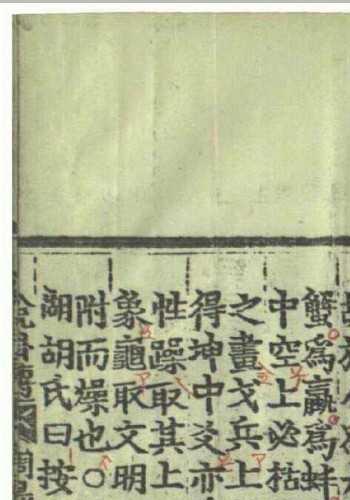 蟹爲蠃爲蚌
中空上必枯
之畫戈兵上
得坤中爻亦
性躁取其上
象龜取文明
附而燥也○
湖胡氏曰按